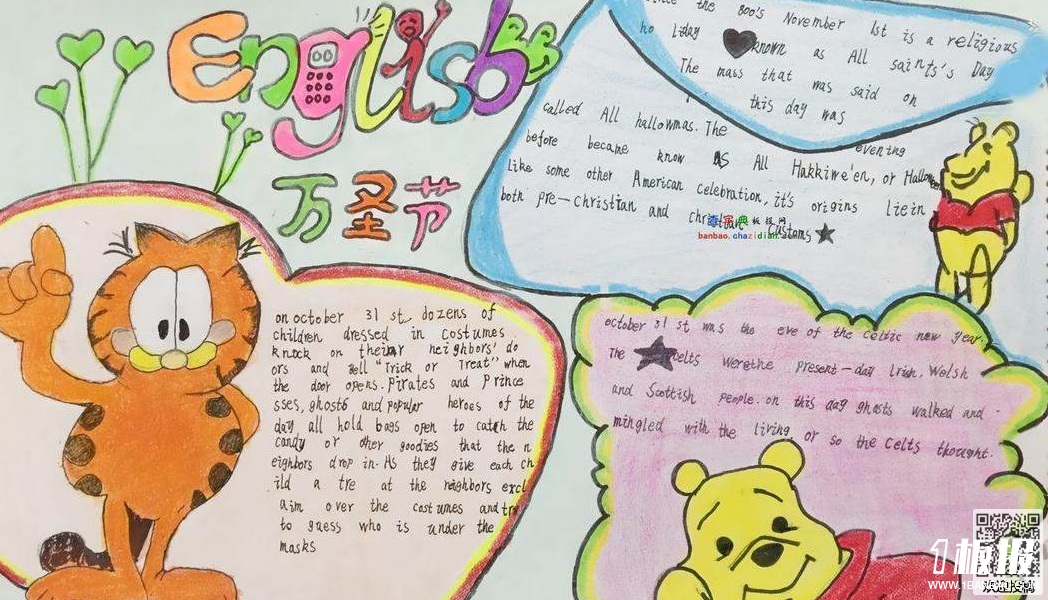 English
万圣节
the 800's November 1st is a religious
ho liday known as All saints's Day
The mass that was said on
this day was
called All hallowmas. The evening
before became know as All Hakkiwe'en, or Hallowe
Like some other American celebration, it's origins liein
both pre-christian and
customs
查字典板报网
banbao.chazidian.
on october 31 st dozens of
children dressed in costumes
knock on their neighbors' do
ors and "Trick or Treat" when
the door opens. Pirates and Prince
sses, ghosts and popular heroes of the
day all hold bags open to catch the
candy or other goodies that the n
eighbors drop in. As they give each ch
ild a tre at the neighbors excl
aim over the costumes and try
to guess who is under the
masks
october 31 st was the eve of the celtic new year.
The celts werethe present-day lrish. Welsh
and Scottish people. on this day ghosts walked and
mingled with the living, or so the Celts thought.
1板报
WWW.1BANBAO.COM
欢迎投稿